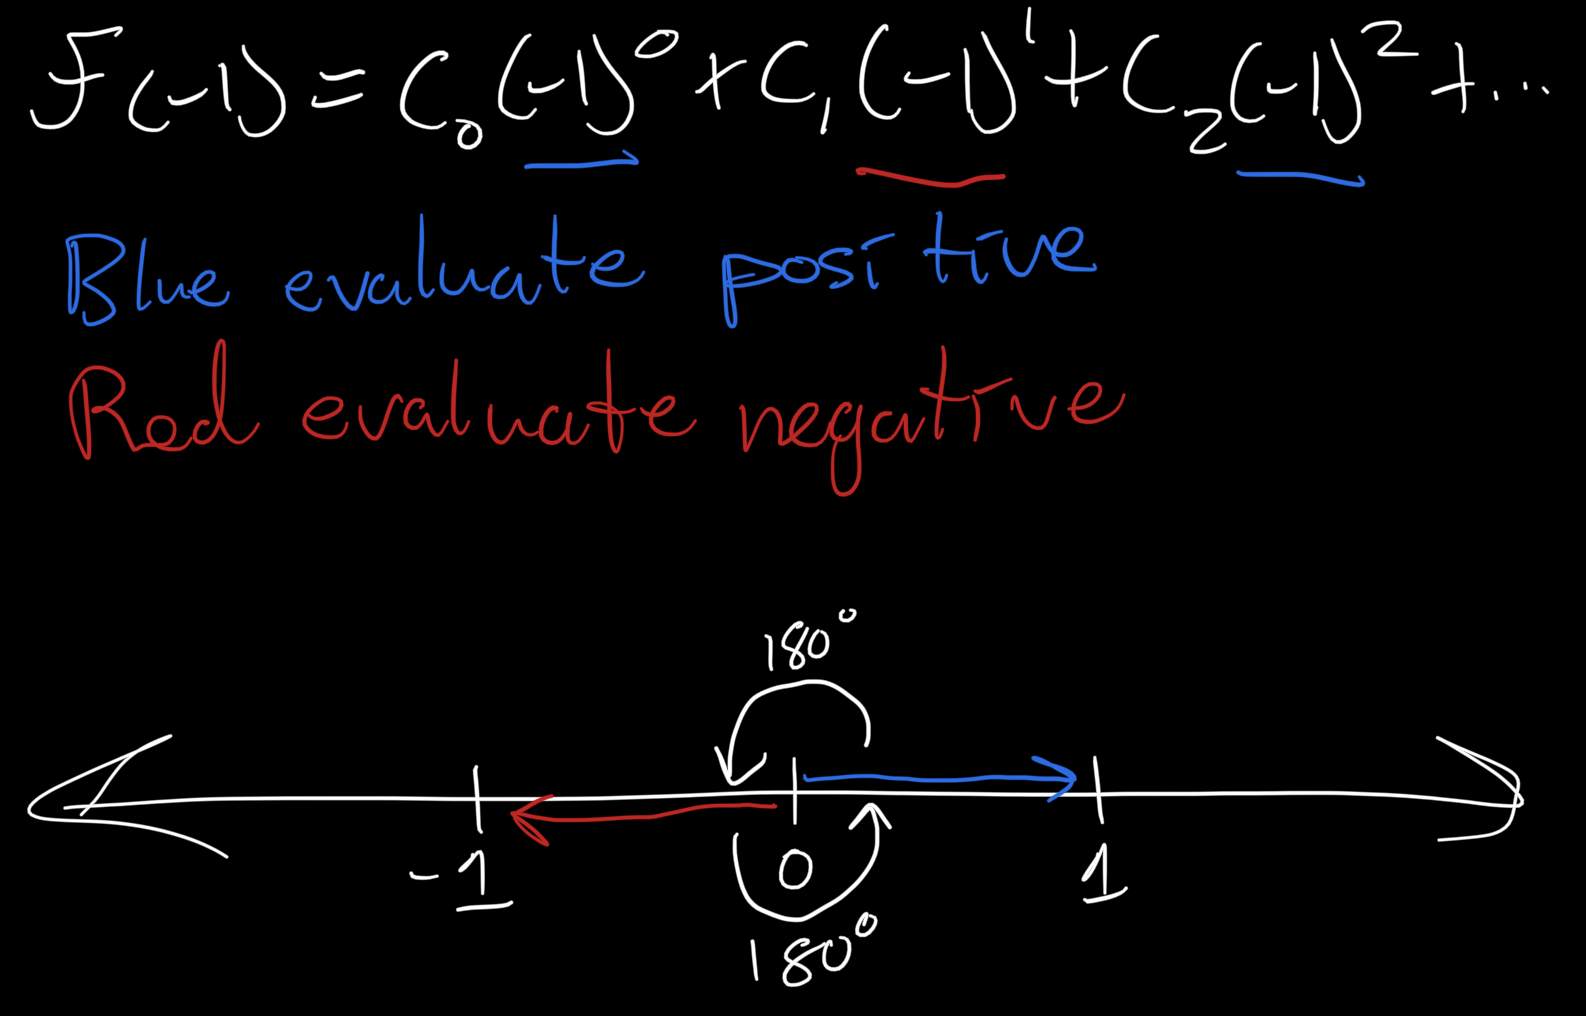 F(-1) = C₀(-1)⁰ + C₁(-1)¹ + C₂(-1)² + ...
Blue evaluate positive
Red evaluate negative
180°
-1 0 1
180°